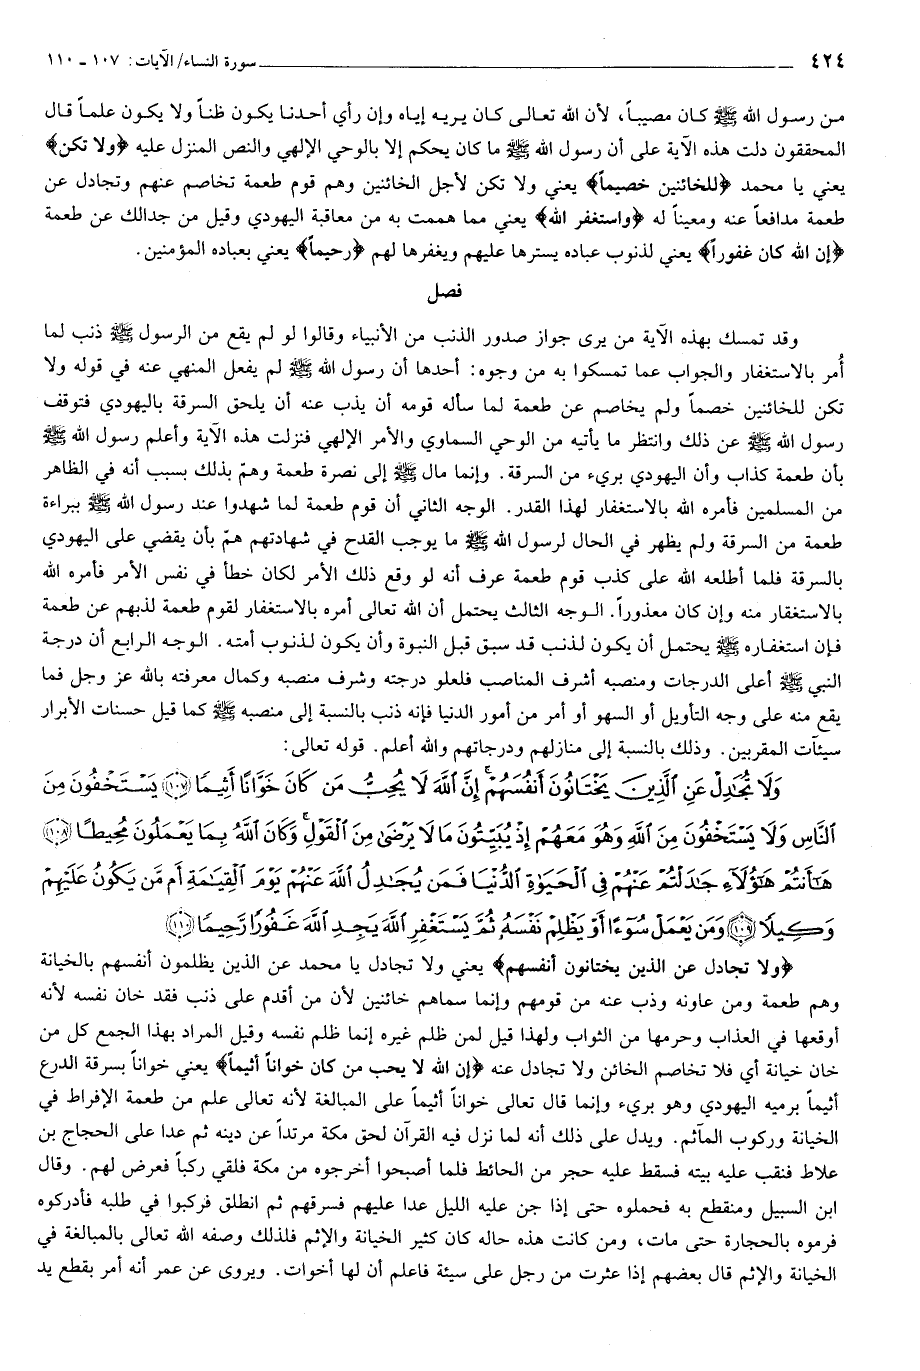 ٤٢٤ سورة النساء/ الآيات: ١٠٧ ـ ١١٠
من رسول الله ﷺ كان مصيباً، لأن الله تعالى كان يريه إياه وإن رأي أحدنا يكون ظناً ولا يكون علماً قال
المحققون دلت هذه الآية على أن رسول الله ﷺ ما كان يحكم إلا بالوحي الإلهي والنص المنزل عليه ﴿ولا تكن﴾
يعني يا محمد ﴿للخائنين خصيماً﴾ يعني ولا تكن لأجل الخائنين وهم قوم طعمة تخاصم عنهم وتجادل عن
طعمة مدافعاً عنه ومعيناً له ﴿واستغفر الله﴾ يعني مما هممت به من معاقبة اليهودي وقيل من جدالك عن طعمة
﴿إن الله كان غفوراً﴾ يعني لذنوب عباده يسترها عليهم ويغفرها لهم ﴿رحيماً﴾ يعني بعباده المؤمنين.
فصل
وقد تمسك بهذه الآية من يرى جواز صدور الذنب من الأنبياء وقالوا لو لم يقع من الرسول ﷺ ذنب لما
أُمر بالاستغفار والجواب عما تمسكوا به من وجوه: أحدها أن رسول الله ﷺ لم يفعل المنهي عنه في قوله ولا
تكن للخائنين خصماً ولم يخاصم عن طعمة لما سأله قومه أن يذب عنه أن يلحق السرقة باليهودي فتوقف
رسول الله ﷺ عن ذلك وانتظر ما يأتيه من الوحي السماوي والأمر الإلهي فنزلت هذه الآية وأعلم رسول الله ﷺ
بأن طعمة كذاب وأن اليهودي بريء من السرقة. وإنما مال ﷺ إلى نصرة طعمة وهمّ بذلك بسبب أنه في الظاهر
من المسلمين فأمره الله بالاستغفار لهذا القدر. الوجه الثاني أن قوم طعمة لما شهدوا عند رسول الله ﷺ ببراءة
طعمة من السرقة ولم يظهر في الحال لرسول الله ﷺ ما يوجب القدح في شهادتهم همّ بأن يقضي على اليهودي
بالسرقة فلما أطلعه الله على كذب قوم طعمة عرف أنه لو وقع ذلك الأمر لكان خطأ في نفس الأمر فأمره الله
بالاستغفار منه وإن كان معذوراً. الوجه الثالث يحتمل أن الله تعالى أمره بالاستغفار لقوم طعمة لذبهم عن طعمة
فإن استغفاره ﷺ يحتمل أن يكون لذنب قد سبق قبل النبوة وأن يكون لذنوب أمته. الوجه الرابع أن درجة
النبي ﷺ أعلى الدرجات ومنصبه أشرف المناصب فلعلو درجته وشرف منصبه وكمال معرفته بالله عز وجل فما
يقع منه على وجه التأويل أو السهو أو أمر من أمور الدنيا فإنه ذنب بالنسبة إلى منصبه ﷺ كما قيل حسنات الأبرار
سيئآت المقربين. وذلك بالنسبة إلى منازلهم ودرجاتهم والله أعلم. قوله تعالى:
وَلَا تُجَٰدِلْ عَنِ ٱلَّذِينَ يَخْتَانُونَ أَنفُسَهُمْ ۚ إِنَّ ٱللَّهَ لَا يُحِبُّ مَن كَانَ خَوَّانًا أَثِيمًا ﴿١٠٧﴾ يَسْتَخْفُونَ مِنَ
ٱلنَّاسِ وَلَا يَسْتَخْفُونَ مِنَ ٱللَّهِ وَهُوَ مَعَهُمْ إِذْ يُبَيِّتُونَ مَا لَا يَرْضَىٰ مِنَ ٱلْقَوْلِ ۚ وَكَانَ ٱللَّهُ بِمَا يَعْمَلُونَ مُحِيطًا ﴿١٠٨﴾
هَٰٓأَنتُمْ هَٰٓؤُلَآءِ جَٰدَلْتُمْ عَنْهُمْ فِى ٱلْحَيَوٰةِ ٱلدُّنْيَا فَمَن يُجَٰدِلُ ٱللَّهَ عَنْهُمْ يَوْمَ ٱلْقِيَٰمَةِ أَم مَّن يَكُونُ عَلَيْهِمْ
وَكِيلًا ﴿١٠٩﴾ وَمَن يَعْمَلْ سُوٓءًا أَوْ يَظْلِمْ نَفْسَهُۥ ثُمَّ يَسْتَغْفِرِ ٱللَّهَ يَجِدِ ٱللَّهَ غَفُورًا رَّحِيمًا ﴿١١٠﴾
﴿ولا تجادل عن الذين يختانون أنفسهم﴾ يعني ولا تجادل يا محمد عن الذين يظلمون أنفسهم بالخيانة
وهم طعمة ومن عاونه وذب عنه من قومهم وإنما سماهم خائنين لأن من أقدم على ذنب فقد خان نفسه لأنه
أوقعها في العذاب وحرمها من الثواب ولهذا قيل لمن ظلم غيره إنما ظلم نفسه وقيل المراد بهذا الجمع كل من
خان خيانة أي فلا تخاصم الخائن ولا تجادل عنه ﴿إن الله لا يحب من كان خواناً أثيماً﴾ يعني خواناً بسرقة الدرع
أثيماً برميه اليهودي وهو بريء وإنما قال تعالى خواناً أثيماً على المبالغة لأنه تعالى علم من طعمة الإفراط في
الخيانة وركوب المآثم. ويدل على ذلك أنه لما نزل فيه القرآن لحق مكة مرتداً عن دينه ثم عدا على الحجاج بن
علاط فنقب عليه بيته فسقط عليه حجر من الحائط فلما أصبحوا أخرجوه من مكة فلقي ركباً فعرض لهم. وقال
ابن السبيل ومنقطع به فحملوه حتى إذا جن عليه الليل عدا عليهم فسرقهم ثم انطلق فركبوا في طلبه فأدركوه
فرموه بالحجارة حتى مات، ومن كانت هذه حاله كان كثير الخيانة والإثم فلذلك وصفه الله تعالى بالمبالغة في
الخيانة والإثم قال بعضهم إذا عثرت من رجل على سيئة فاعلم أن لها أخوات. ويروى عن عمر أنه أمر بقطع يد